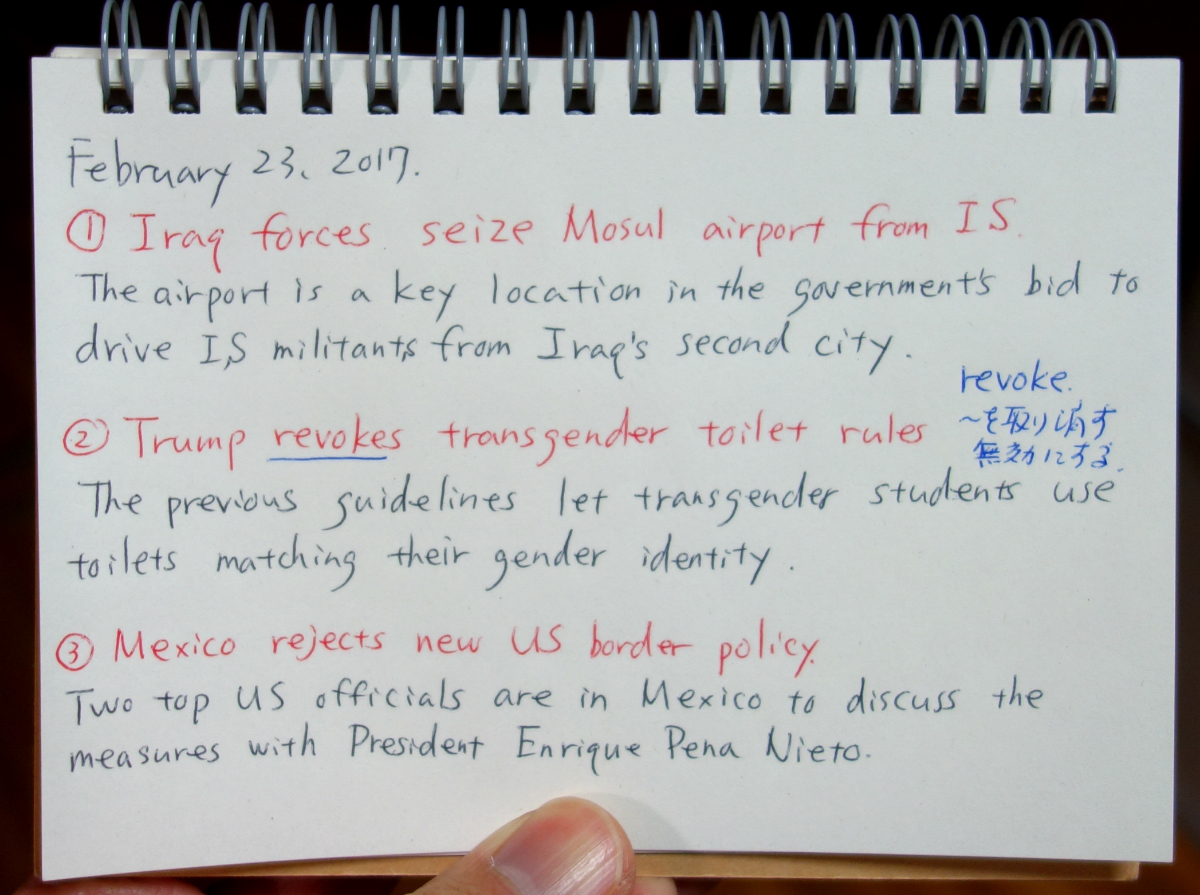 February 23, 2017.
① Iraq forces seize Mosul airport from IS.
The airport is a key location in the government's bid to
drive IS militants from Iraq's second city.
revoke.
~を取り消す
無効にする.
② Trump revokes transgender toilet rules
The previous guidelines let transgender students use
toilets matching their gender identity.
③ Mexico rejects new US border policy.
Two top US officials are in Mexico to discuss the
measures with President Enrique Pena Nieto.